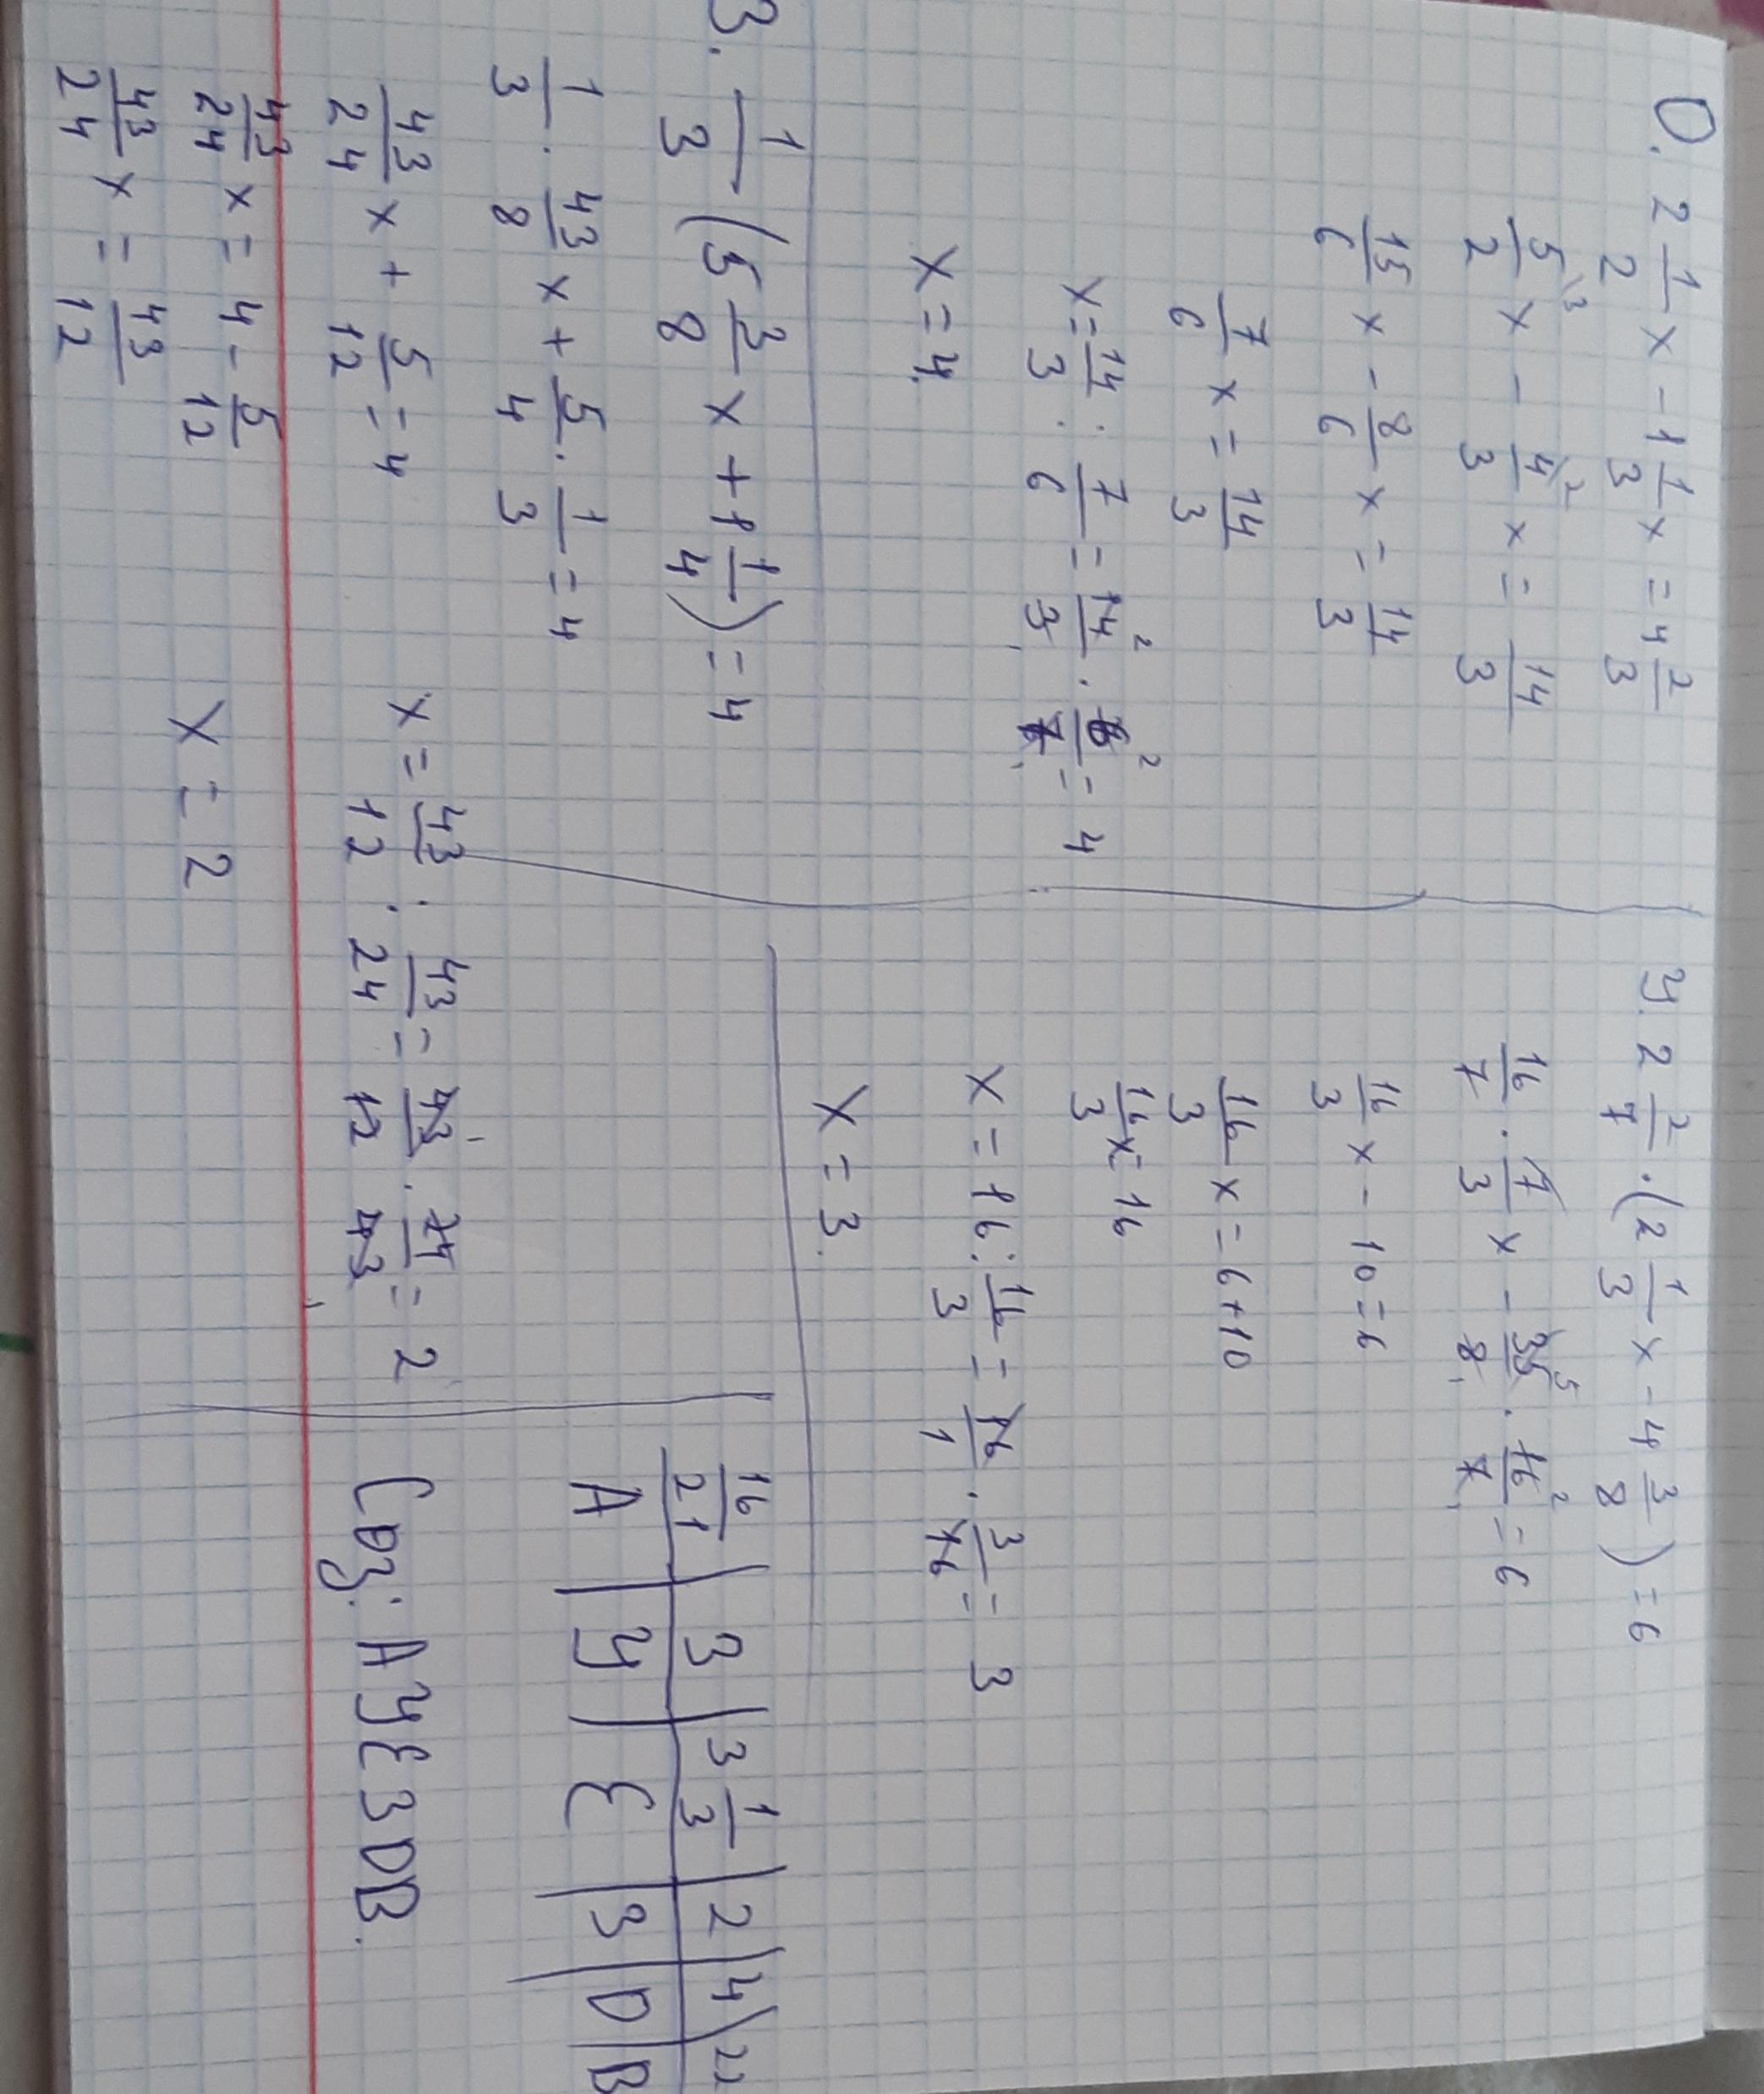 О. 2 1/2 x - 1 1/3 x = 4 2/3
5/2 \3 x - 4/3 \2 x = 14/3
15/6 x - 8/6 x = 14/3
7/6 x = 14/3
x = 14/3 : 7/6 = 14/3 · 6/7 = 4
x = 4.
У. 2 2/7 · (2 1/3 x - 4 3/8) = 6
16/7 · 7/3 x - 35/8 · 16/7 = 6
16/3 x - 10 = 6
16/3 x = 6 + 10
16/3 x = 16
x = 16 : 16/3 = 16/1 · 3/16 = 3
x = 3.
З. 1/3 (5 3/8 x + 1 1/4) = 4
1/3 · 43/8 x + 5/4 · 1/3 = 4
43/24 x + 5/12 = 4
43/24 x = 4 - 5/12
43/24 x = 43/12
x = 43/12 : 43/24 = 43/12 · 24/43 = 2
x = 2
16/21 | 3 | 3 1/3 | 2 | 4 | 22
А | У | Е | З | О | В
Сөз: АУЕЗОВ.